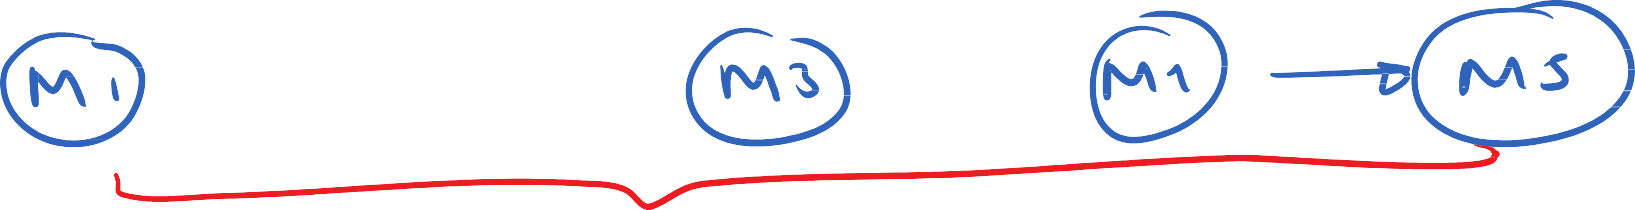 M1 M3 M1 → M5